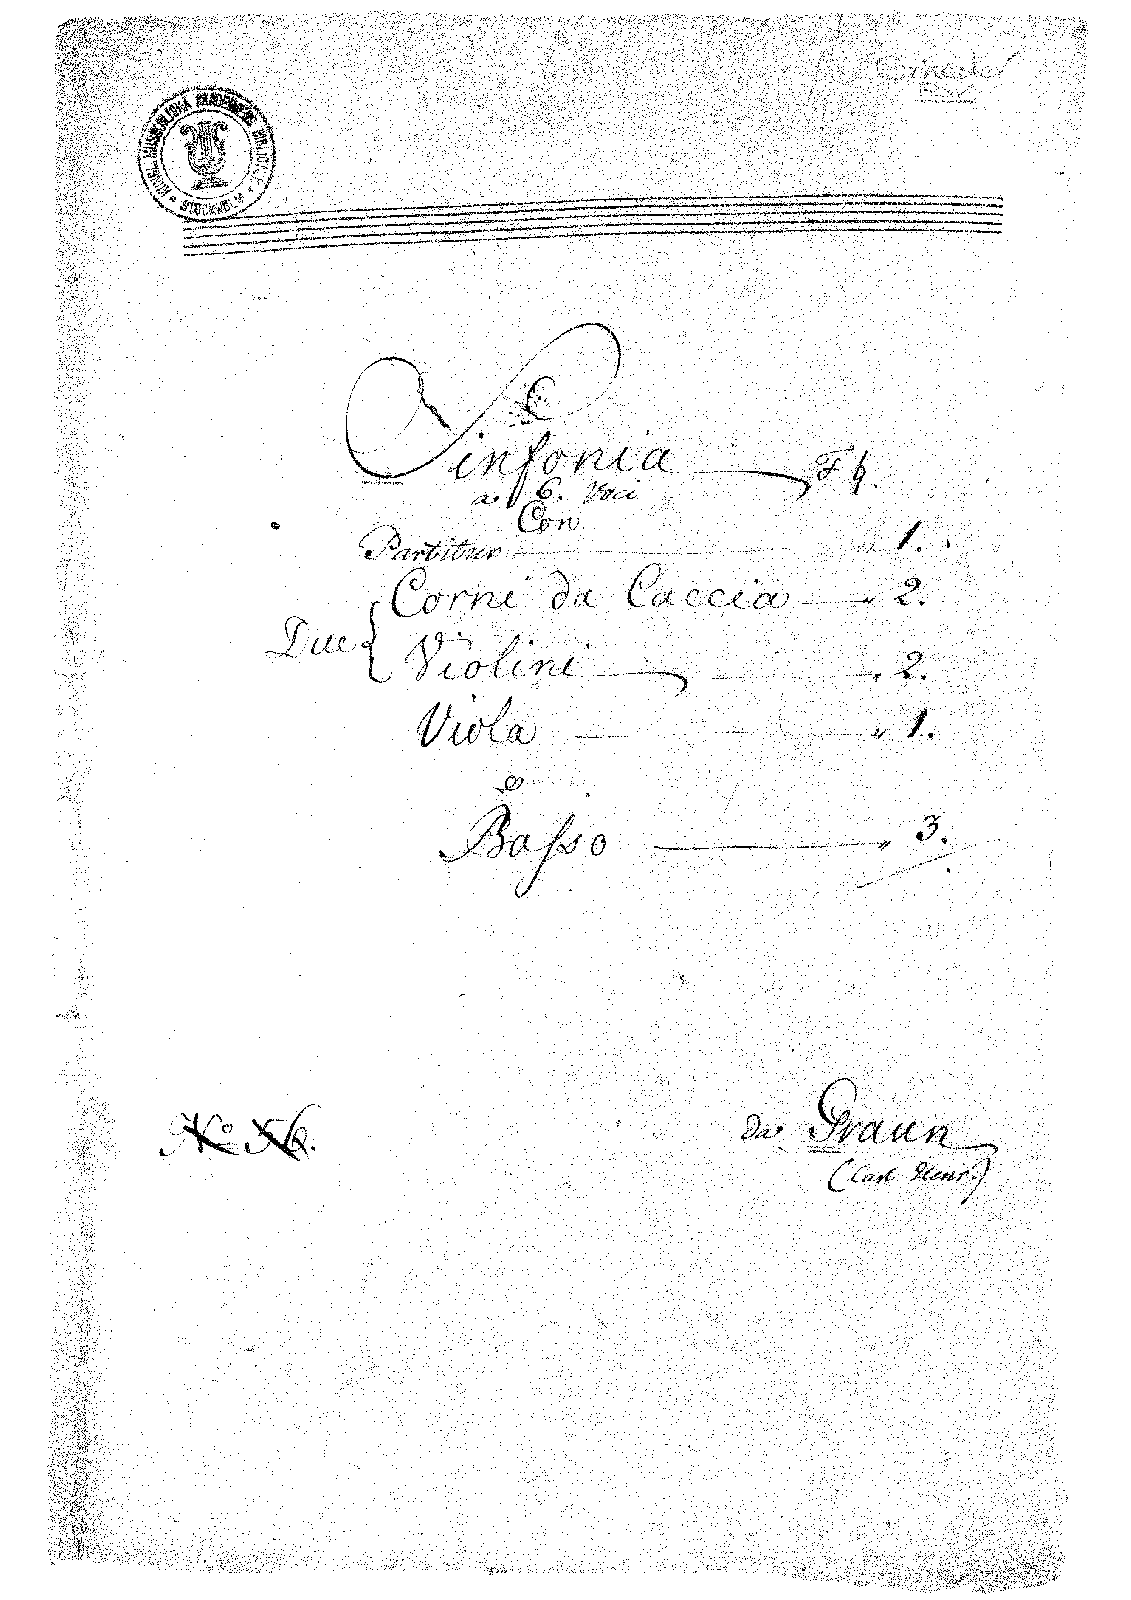 KUNGL. MUSIKALISKA AKADEMIENS BIBLIOTEK
STOCKHOLM
Sinfonia F ♮.
a 6. Voci
Con
Partitur 1.
Corni da Caccia " 2.
Due
Violini " 2.
Viola " 1.
e
Basso " 3.
No
da Graun
(Carl Henr.)